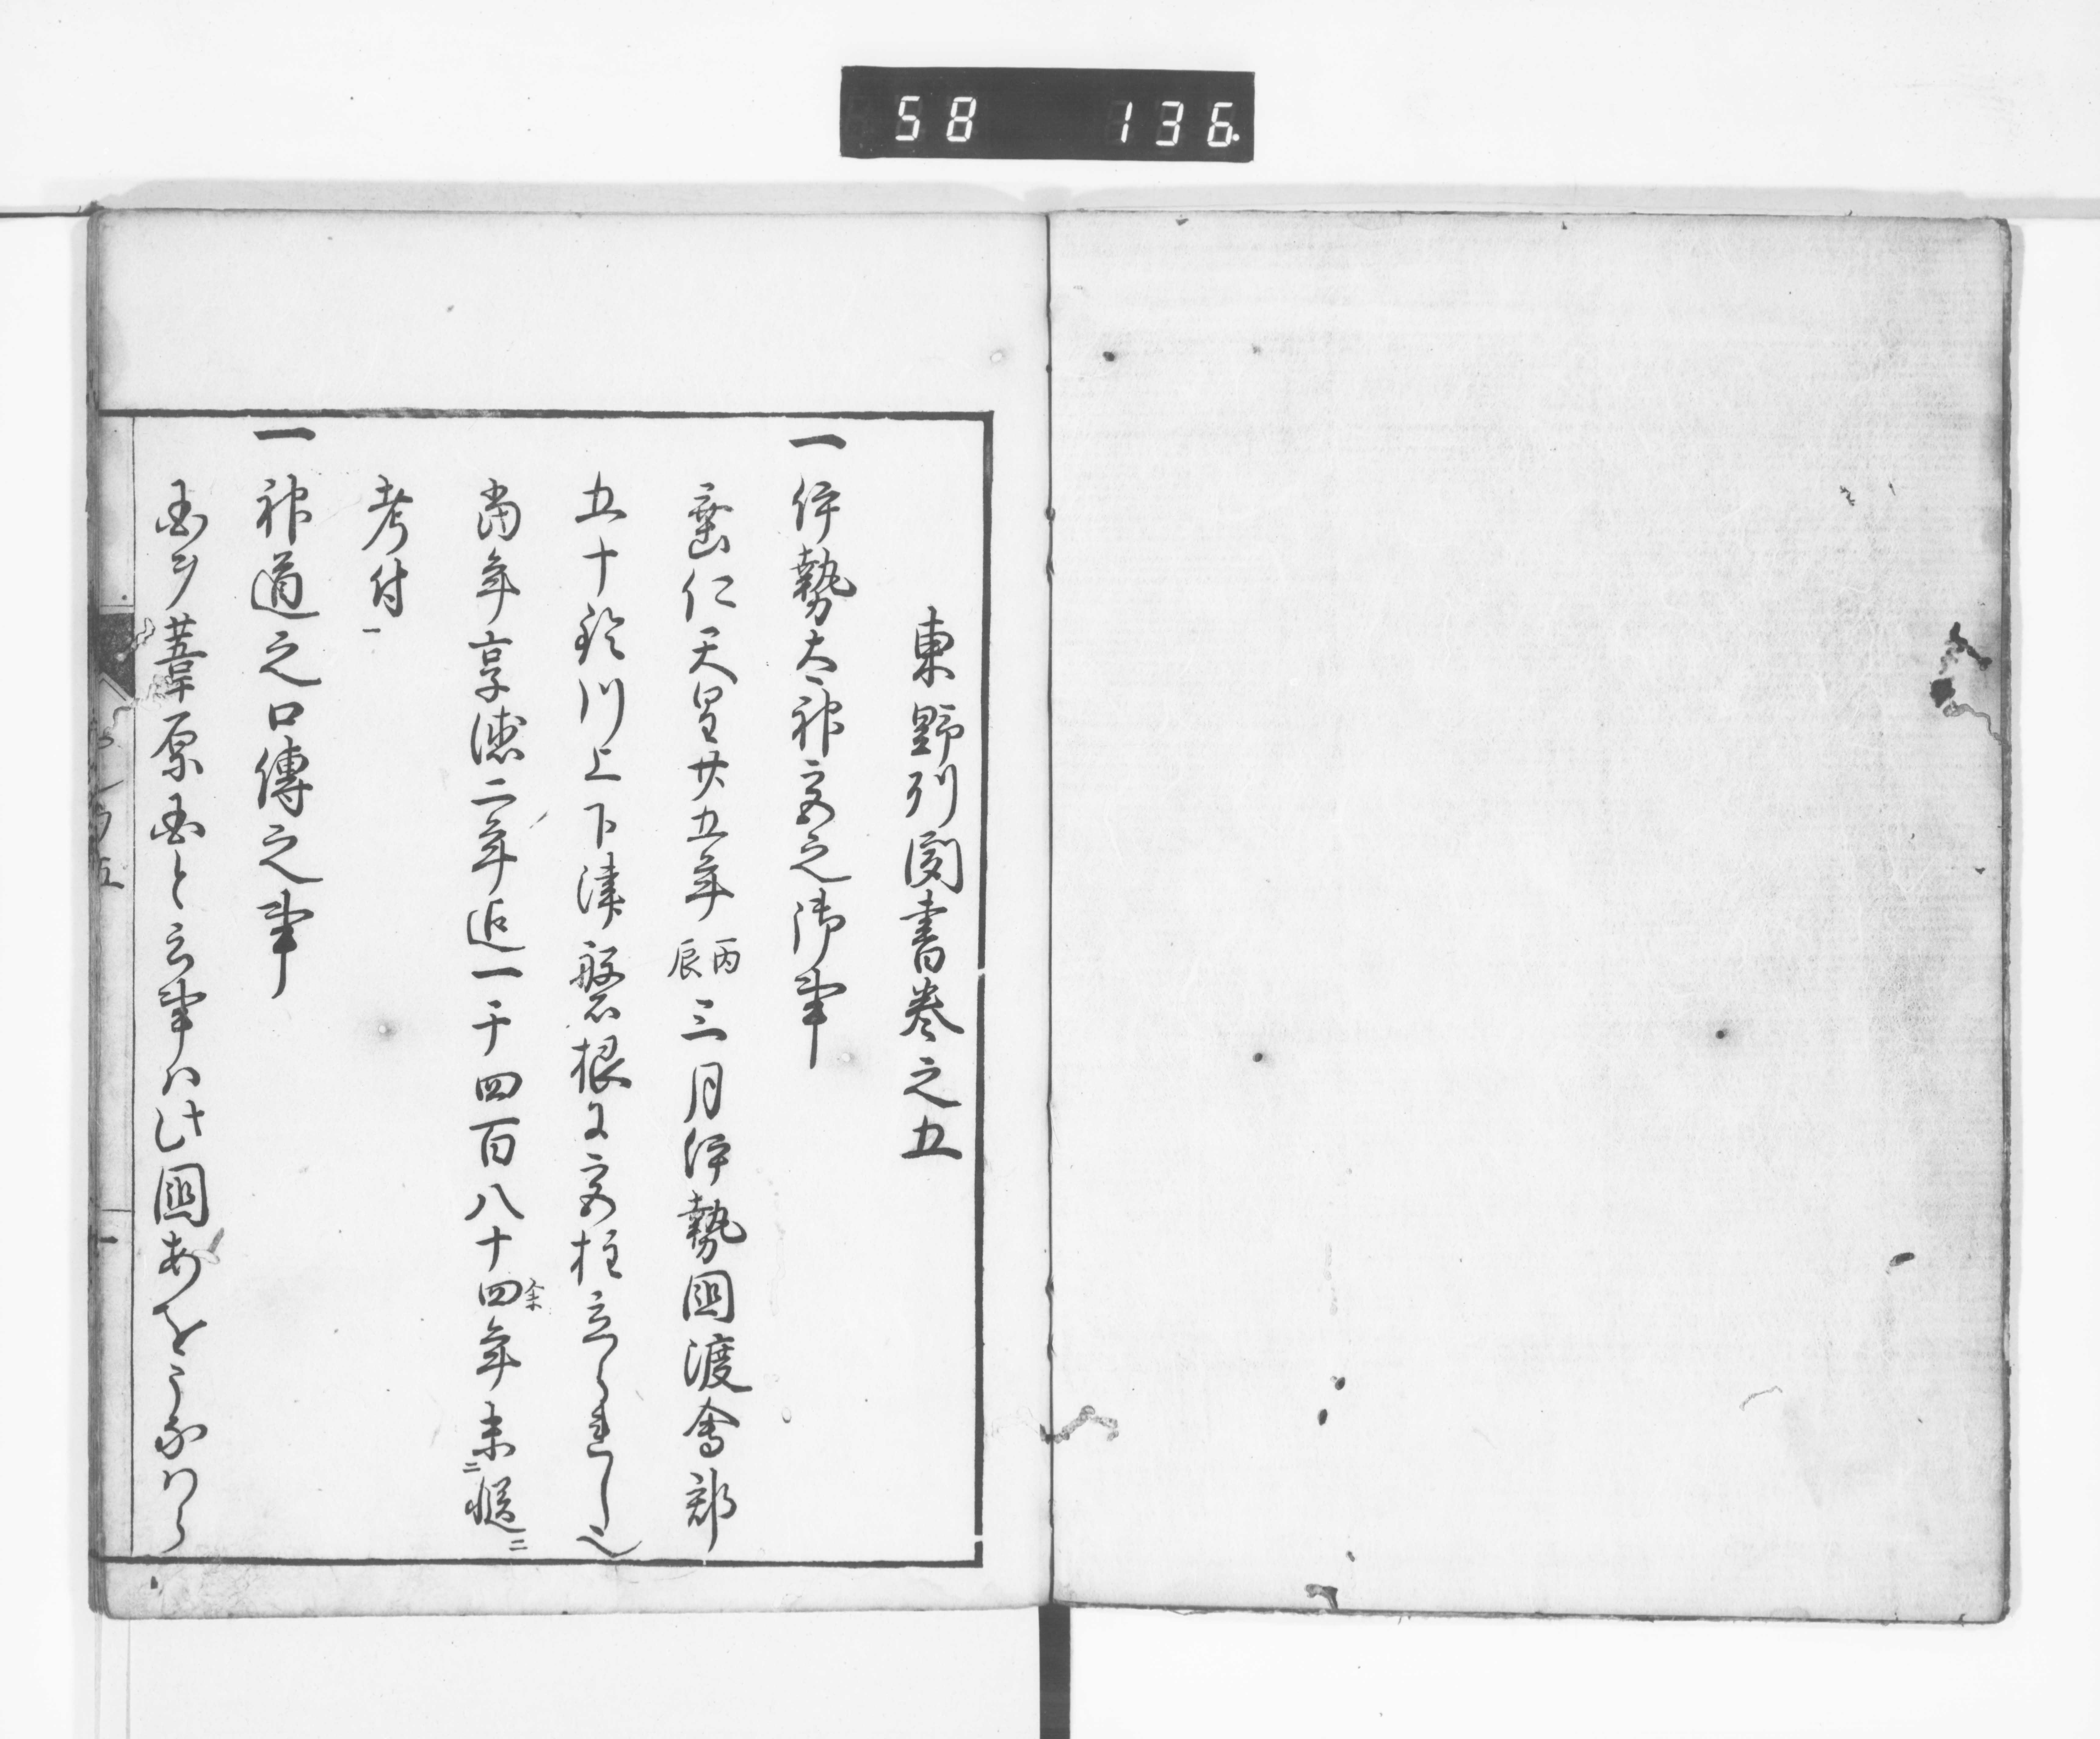 58 136
東野列聞書巻之五
一伊勢太神宮之御事
垂仁天皇廿五年丙辰三月伊勢國渡會郡
五十鈴川上下津磐根に宮柱立られし也
當年享徳二年迄一千四百八十四年余未慥
考付
一神道之口傳之事
吾葦原国と云事ハ此國あをうなハら